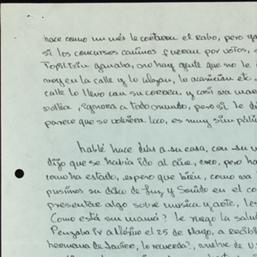 hace como un mes le cortaron el rabo, pero ya
si los concursos caninos fueran por votos,
ganaba, no hay gente que no le
en la calle y lo alagan, lo acarician etc.
calle lo llevo con su correa, y casi va
ignora a todo mundo, pero si le di
parece que se volviera loco, es muy simpático
hablé hace días a su casa, con su
dijo que se había ido al cine, creo, pero ha
como ha estado, espero que bien, como va
pusimos su disco de Luz y Sonido en el co
presentar algo sobre música y arte, les
Como está su mamá? le ruego la salu
Pensaba ir a México el 25 de Mayo, a recibi
hermana de Javier, lo recuerda?, vuelve de